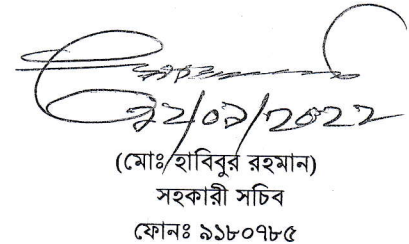 ১২/০১/২০২২
(মোঃ হাবিবুর রহমান)
সহকারী সচিব
ফোনঃ ৯১৮০৭৮৫